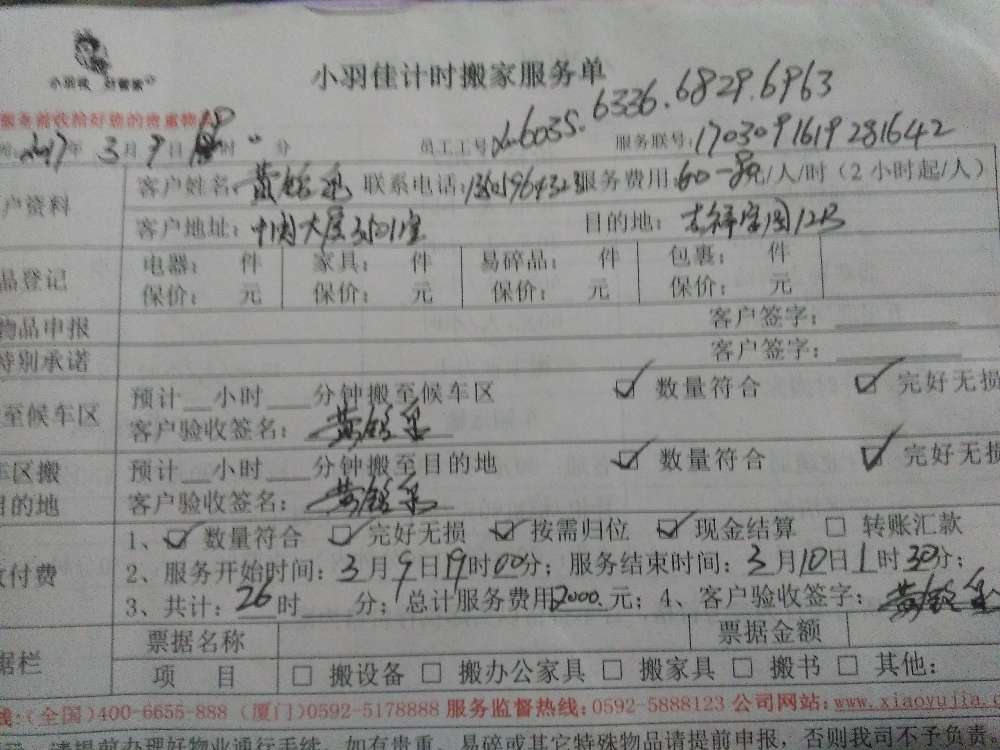 小羽佳计时搬家服务单
服务前收拾好您的贵重物品
2017年3月9日 时 分 员工工号 6035.6336.6829.6963 服务联号:170309161928 1642
户资料 客户姓名: 黄 联系电话: 服务费用:60 元/人/时(2小时起/人)
客户地址:中闽大厦 室 目的地:吉祥家园12B
品登记 电器: 件 家具: 件 易碎品: 件 包裹: 件
保价: 元 保价: 元 保价: 元 保价: 元
物品申报 客户签字:
特别承诺 客户签字:
至候车区 预计__小时___分钟搬至候车区 ☑ 数量符合 ☑ 完好无损
客户验收签名: 黄
车区搬 预计__小时___分钟搬至目的地 ☑ 数量符合 ☑ 完好无损
目的地 客户验收签名: 黄
1、☑ 数量符合 ☑ 完好无损 ☑ 按需归位 ☑ 现金结算 □ 转账汇款
付费 2、服务开始时间:3月9日19时00分; 服务结束时间:3月10日1时30分;
3、共计:26时____分; 总计服务费用2000.元; 4、客户验收签字: 黄
据栏 票据名称 票据金额
项 目 □ 搬设备 □ 搬办公家具 □ 搬家具 □ 搬书 □ 其他:
线:(全国)400-6655-888 (厦门)0592-5178888 服务监督热线:0592-5888123 公司网站:www.xiaoyujia.c
请提前办理好物业通行手续,如有贵重、易碎或其它特殊物品请提前申报,否则我司不予负责。